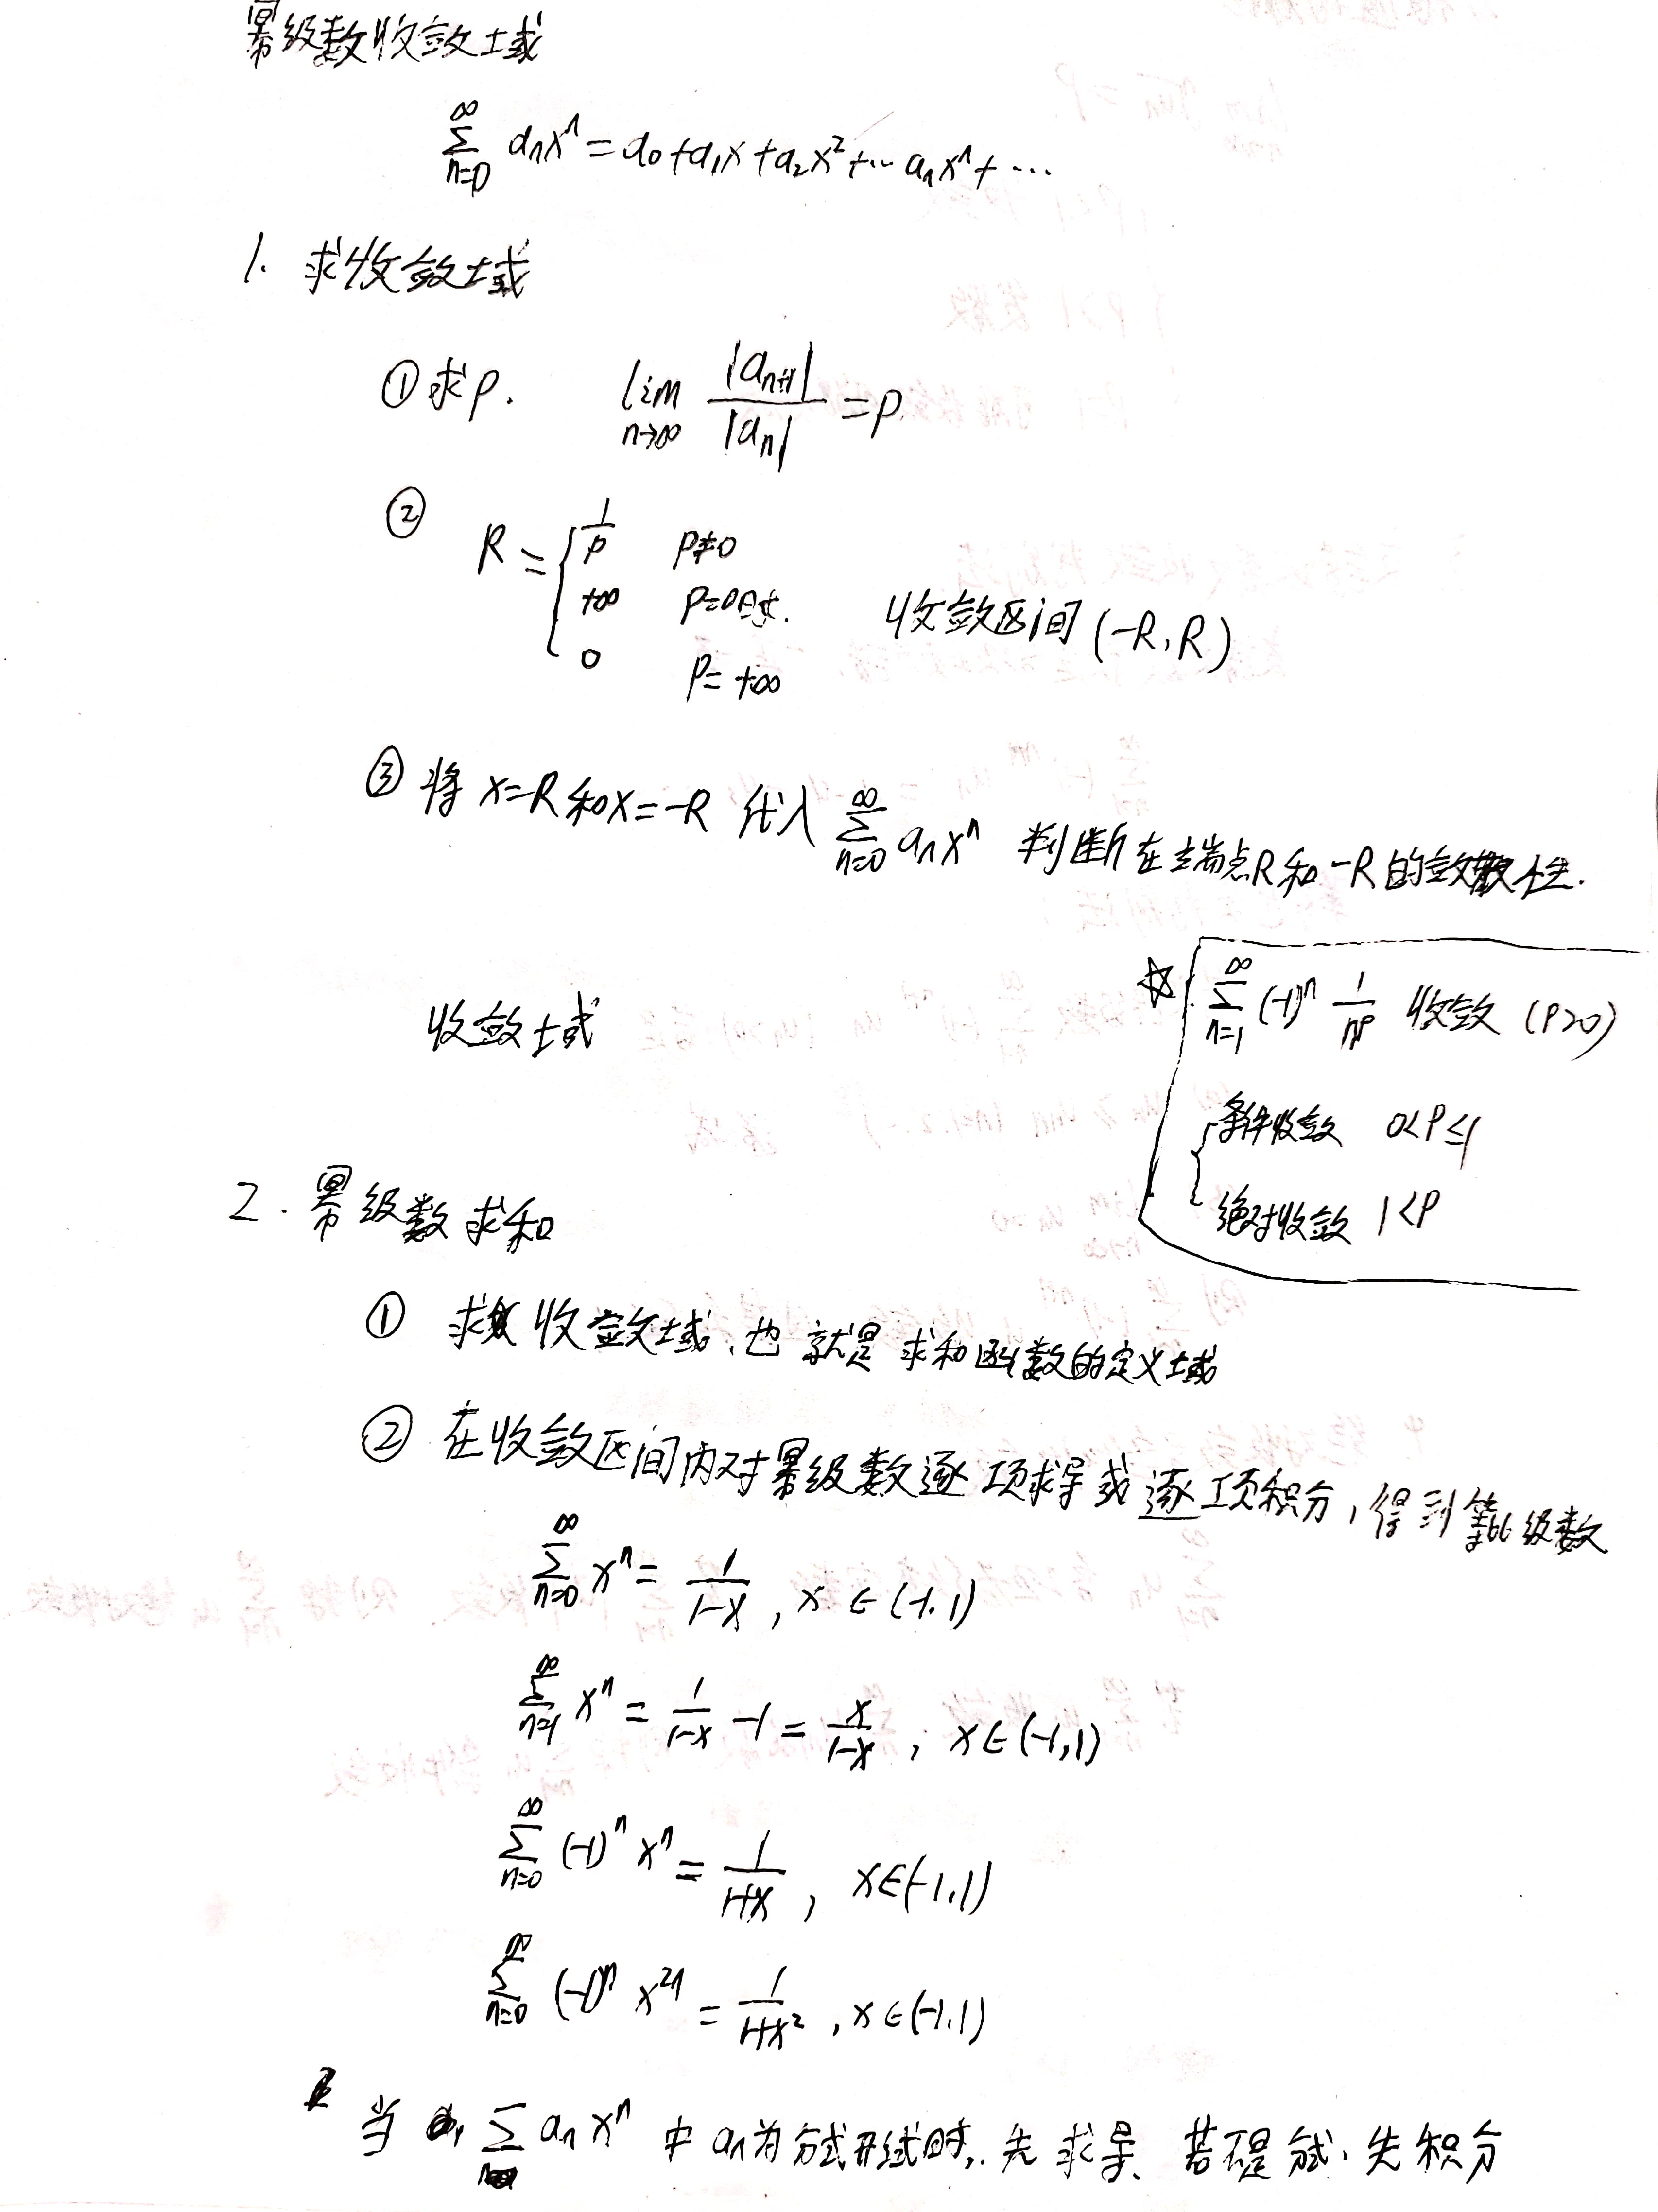 幂级数收敛域
∑_{n=0}^{∞} aₙxⁿ = a₀+a₁x+a₂x²+⋯aₙxⁿ+⋯
1. 求收敛域
① 求ρ. lim_{n→∞} |aₙ₊₁|/|aₙ| = ρ.
② R = { 1/ρ ρ≠0
+∞ ρ=0时. 收敛区间 (-R, R)
0 ρ=+∞
③ 将 x=R和x=-R 代入 ∑_{n=0}^{∞} aₙxⁿ 判断在端点R和-R的敛散性.
☆ ∑_{n=1}^{∞} (-1)ⁿ 1/nᵖ 收敛 (P>0)
收敛域
{ 条件收敛 0<P≤1
绝对收敛 1<P
2. 幂级数求和
① 求收敛域,也就是求和函数的定义域
② 在收敛区间内对幂级数逐项求导或逐项积分,得到等比级数
∑_{n=0}^{∞} xⁿ = 1/(1-x), x∈(-1,1)
∑_{n=1}^{∞} xⁿ = 1/(1-x) -1 = x/(1-x), x∈(-1,1)
∑_{n=0}^{∞} (-1)ⁿ xⁿ = 1/(1+x), x∈(-1,1)
∑_{n=0}^{∞} (-1)ⁿ x²ⁿ = 1/(1+x²), x∈(-1,1)
当 ∑ aₙxⁿ 中 aₙ为分式形式时,先求导、若不是分式、先积分